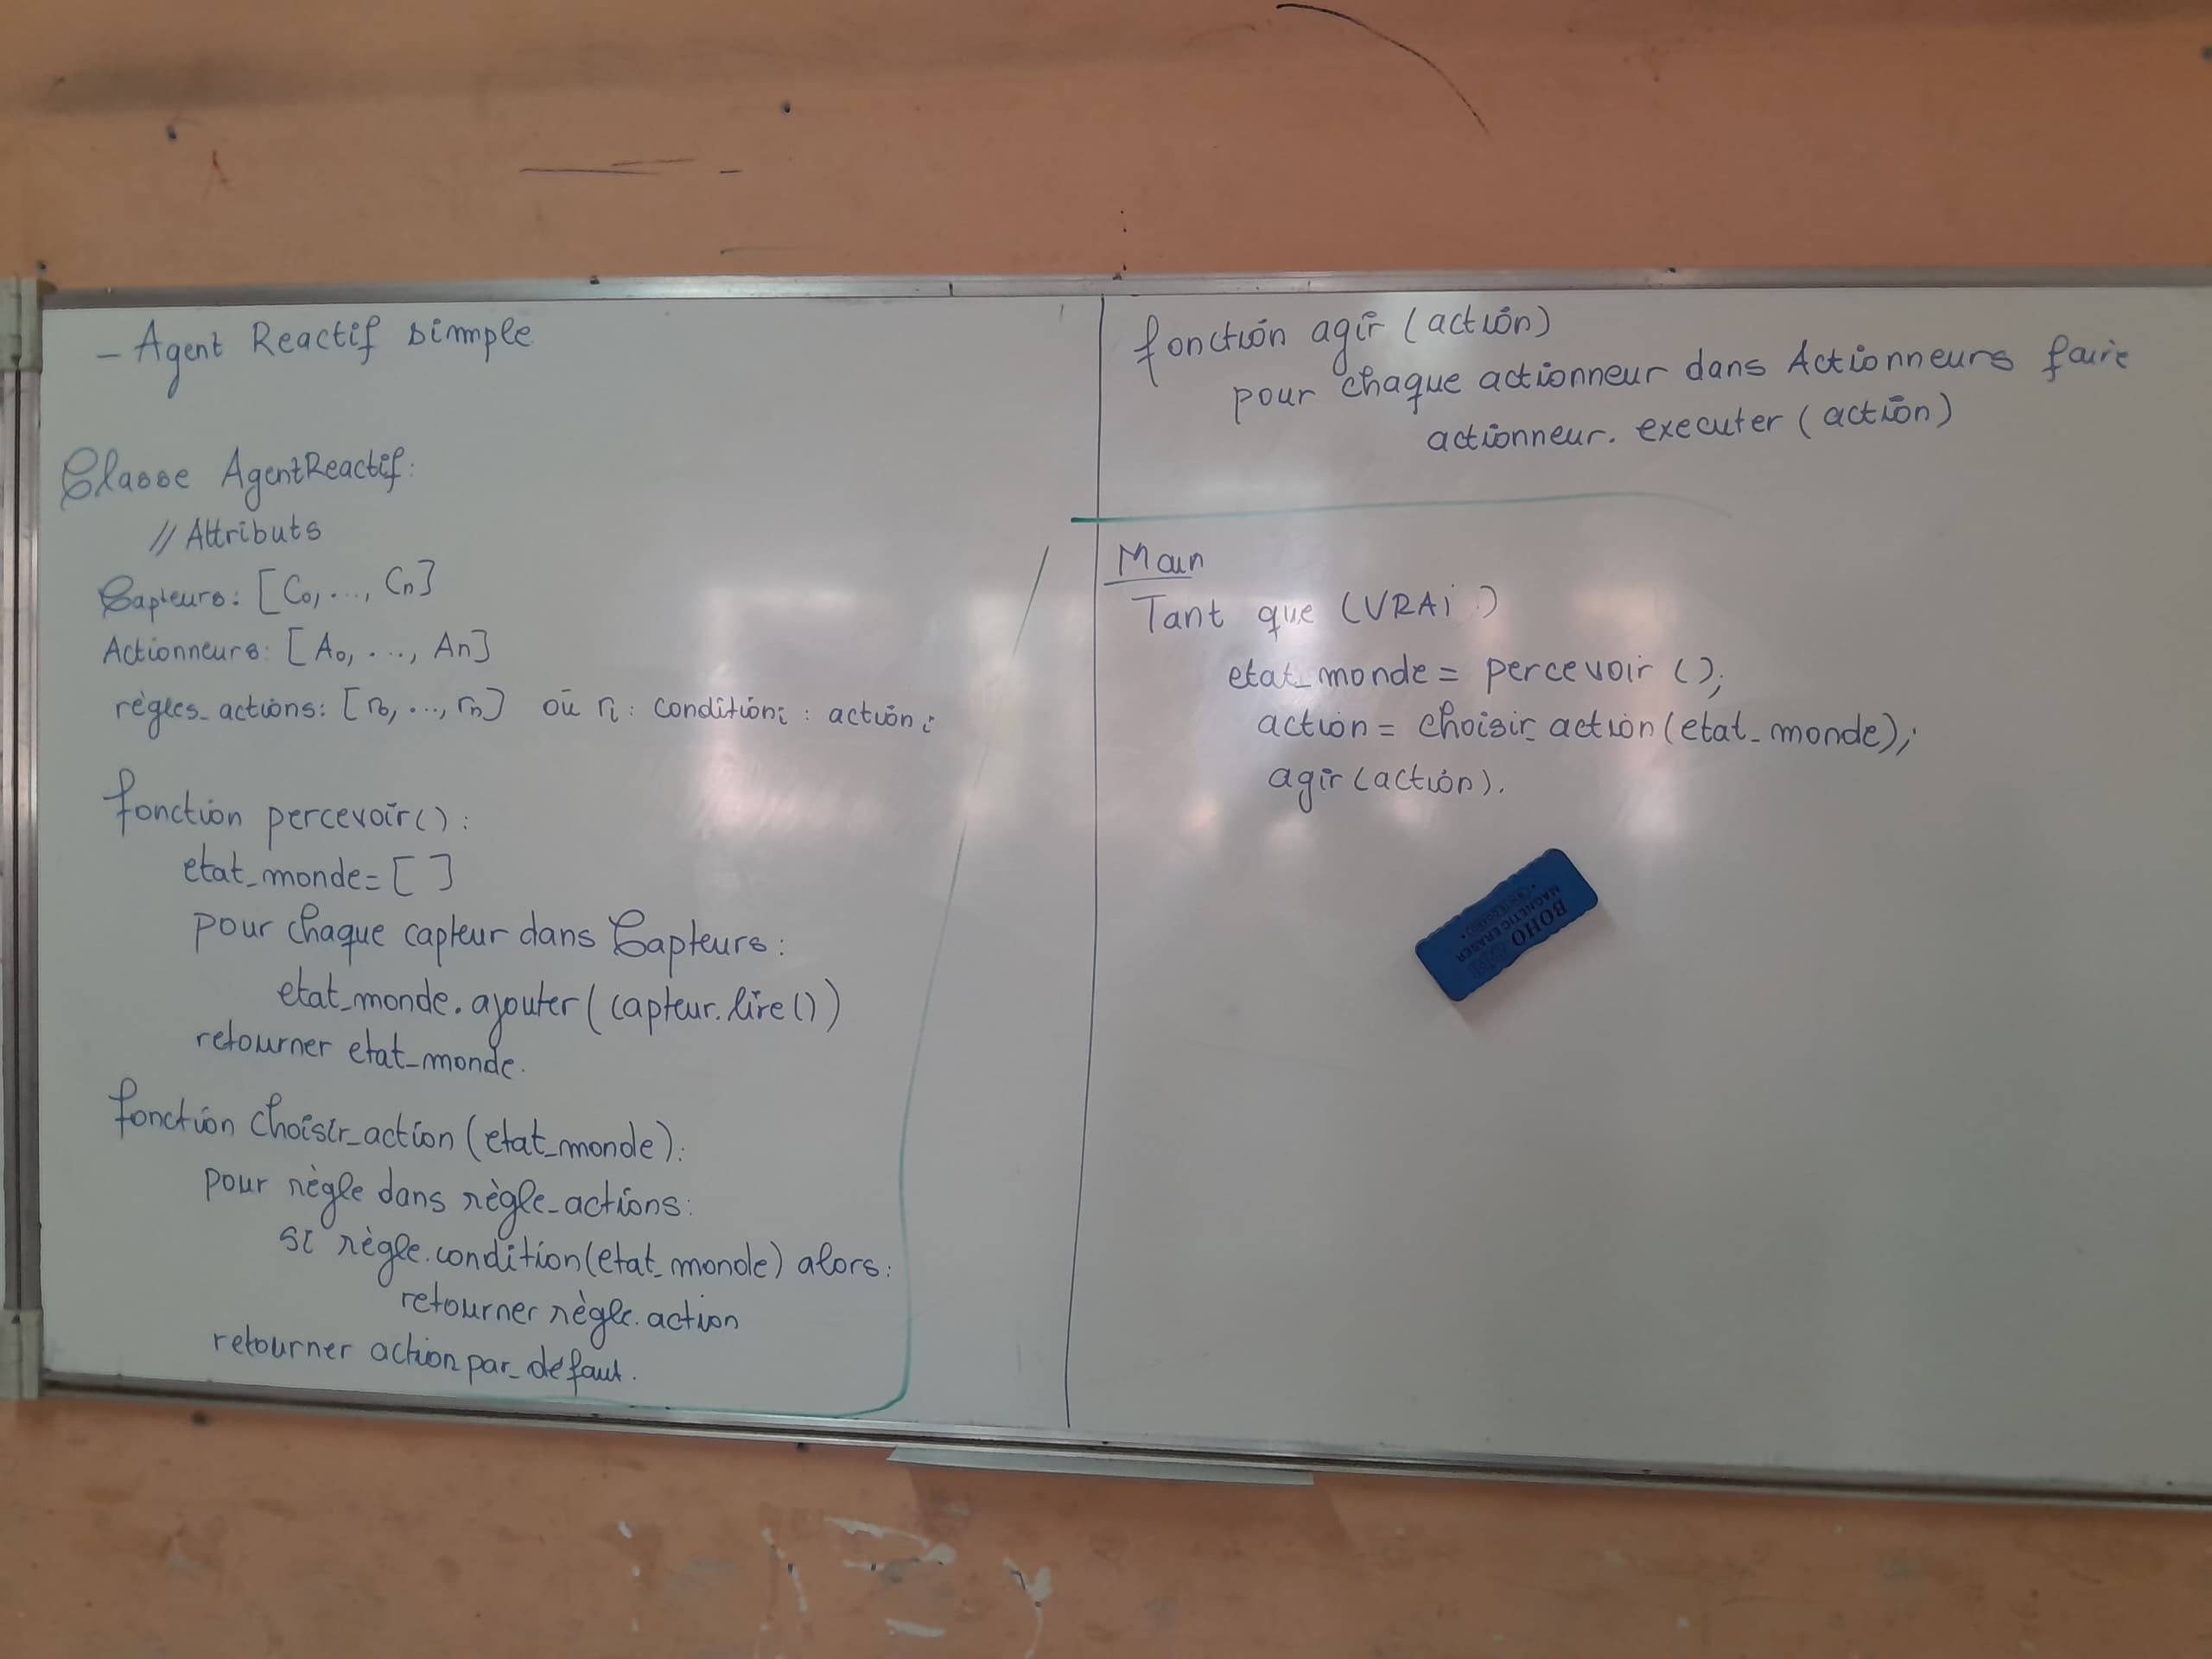 - Agent Reactif simple
Classe AgentReactif:
// Attributs
Capteurs: [C0, ..., Cn]
Actionneurs: [A0, ..., An]
règles_actions: [r0, ..., rn] où ri : conditioni : actioni
fonction percevoir():
etat_monde = [ ]
pour chaque capteur dans Capteurs:
etat_monde.ajouter(capteur.lire())
retourner etat_monde.
fonction choisir_action (etat_monde):
pour règle dans règle_actions:
si règle.condition(etat_monde) alors:
retourner règle.action
retourner action_par_defaut.
fonction agir (action)
pour chaque actionneur dans Actionneurs faire
actionneur.executer (action)
Main
Tant que (VRAi)
etat_monde = percevoir ();
action = choisir_action(etat_monde);
agir(action).
BOHO
MAGNETIC ERASER